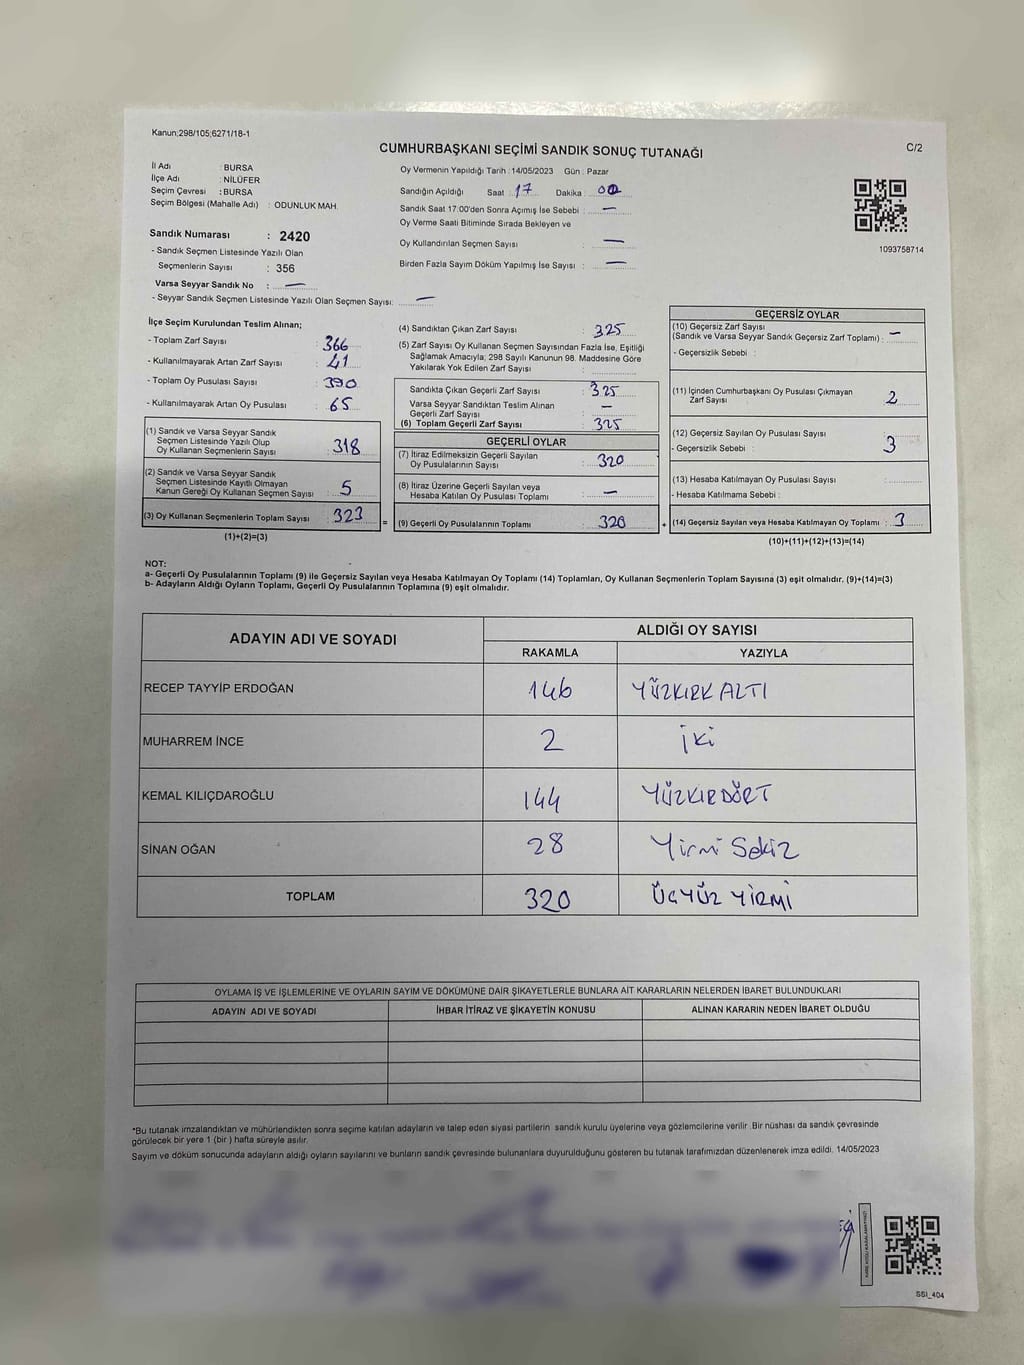 Kanun;298/105;6271/18-1
CUMHURBAŞKANI SEÇİMİ SANDIK SONUÇ TUTANAĞI
C/2
İl Adı : BURSA
İlçe Adı : NİLÜFER
Seçim Çevresi : BURSA
Seçim Bölgesi (Mahalle Adı) : ODUNLUK MAH.
Sandık Numarası : 2420
- Sandık Seçmen Listesinde Yazılı Olan
Seçmenlerin Sayısı : 356
Varsa Seyyar Sandık No : —
- Seyyar Sandık Seçmen Listesinde Yazılı Olan Seçmen Sayısı: —
Oy Vermenin Yapıldığı Tarih : 14/05/2023 Gün : Pazar
Sandığın Açıldığı Saat : 17 Dakika : 00
Sandık Saat 17:00'den Sonra Açımış İse Sebebi : —
Oy Verme Saati Bitiminde Sırada Bekleyen ve
Oy Kullandırılan Seçmen Sayısı : —
Birden Fazla Sayım Döküm Yapılmış İse Sayısı : —
1093758714
İlçe Seçim Kurulundan Teslim Alınan;
- Toplam Zarf Sayısı : 366
- Kullanılmayarak Artan Zarf Sayısı : 41
- Toplam Oy Pusulası Sayısı : 390
- Kullanılmayarak Artan Oy Pusulası : 65
(1) Sandık ve Varsa Seyyar Sandık
Seçmen Listesinde Yazılı Olup
Oy Kullanan Seçmenlerin Sayısı : 318
(2) Sandık ve Varsa Seyyar Sandık
Seçmen Listesinde Kayıtlı Olmayan
Kanun Gereği Oy Kullanan Seçmen Sayısı : 5
(3) Oy Kullanan Seçmenlerin Toplam Sayısı : 323
(1)+(2)=(3)
(4) Sandıktan Çıkan Zarf Sayısı : 325
(5) Zarf Sayısı Oy Kullanan Seçmen Sayısından Fazla İse, Eşitliği
Sağlamak Amacıyla; 298 Sayılı Kanunun 98. Maddesine Göre
Yakılarak Yok Edilen Zarf Sayısı :
Sandıkta Çıkan Geçerli Zarf Sayısı : 325
Varsa Seyyar Sandıktan Teslim Alınan
Geçerli Zarf Sayısı : —
(6) Toplam Geçerli Zarf Sayısı : 325
GEÇERLİ OYLAR
(7) İtiraz Edilmeksizin Geçerli Sayılan
Oy Pusulalarının Sayısı : 320
(8) İtiraz Üzerine Geçerli Sayılan veya
Hesaba Katılan Oy Pusulası Toplamı : —
= (9) Geçerli Oy Pusulalarının Toplamı : 320
GEÇERSİZ OYLAR
(10) Geçersiz Zarf Sayısı
(Sandık ve Varsa Seyyar Sandık Geçersiz Zarf Toplamı) : —
- Geçersizlik Sebebi :
(11) İçinden Cumhurbaşkanı Oy Pusulası Çıkmayan
Zarf Sayısı : 2
(12) Geçersiz Sayılan Oy Pusulası Sayısı : 3
- Geçersizlik Sebebi :
(13) Hesaba Katılmayan Oy Pusulası Sayısı :
- Hesaba Katılmama Sebebi :
+ (14) Geçersiz Sayılan veya Hesaba Katılmayan Oy Toplamı : 3
(10)+(11)+(12)+(13)=(14)
NOT:
a- Geçerli Oy Pusulalarının Toplamı (9) ile Geçersiz Sayılan veya Hesaba Katılmayan Oy Toplamı (14) Toplamları, Oy Kullanan Seçmenlerin Toplam Sayısına (3) eşit olmalıdır. (9)+(14)=(3)
b- Adayların Aldığı Oyların Toplamı, Geçerli Oy Pusulalarının Toplamına (9) eşit olmalıdır.
ADAYIN ADI VE SOYADI
ALDIĞI OY SAYISI
RAKAMLA YAZIYLA
RECEP TAYYİP ERDOĞAN 146 YÜZKIRK ALTI
MUHARREM İNCE 2 İKİ
KEMAL KILIÇDAROĞLU 144 YÜZKIRDÖRT
SİNAN OĞAN 28 Yirmi Sekiz
TOPLAM 320 ÜÇYÜZ YİRMİ
OYLAMA İŞ VE İŞLEMLERİNE VE OYLARIN SAYIM VE DÖKÜMÜNE DAİR ŞİKAYETLERLE BUNLARA AİT KARARLARIN NELERDEN İBARET BULUNDUKLARI
ADAYIN ADI VE SOYADI İHBAR İTİRAZ VE ŞİKAYETİN KONUSU ALINAN KARARIN NEDEN İBARET OLDUĞU
*Bu tutanak imzalandıktan ve mühürlendikten sonra seçime katılan adayların ve talep eden siyasi partilerin sandık kurulu üyelerine veya gözlemcilerine verilir .Bir nüshası da sandık çevresinde
görülecek bir yere 1 (bir ) hafta süreyle asılır.
Sayım ve döküm sonucunda adayların aldığı oyların sayılarını ve bunların sandık çevresinde bulunanlara duyurulduğunu gösteren bu tutanak tarafımızdan düzenlenerek imza edildi. 14/05/2023
SSI_404